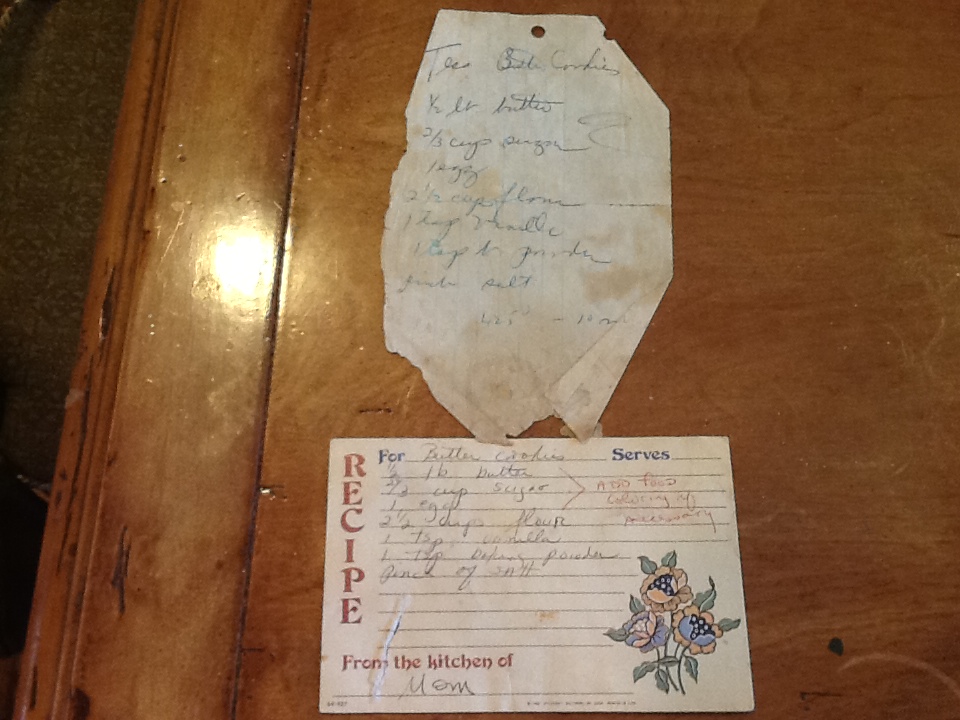 Tea Cookies
1/2 lb butter
2/3 cup sugar
1 egg
2 1/2 cup flour
1 tsp vanilla
1 tsp b powder
salt
425° - 10 m
RECIPE
For Butter Cookies Serves
1/2 lb butter
2/3 cup sugar
1 egg
2 1/2 cups flour
1 tsp vanilla
1 tsp baking powder
Pinch of salt
ADD food
coloring if
necessary
From the kitchen of
Mom